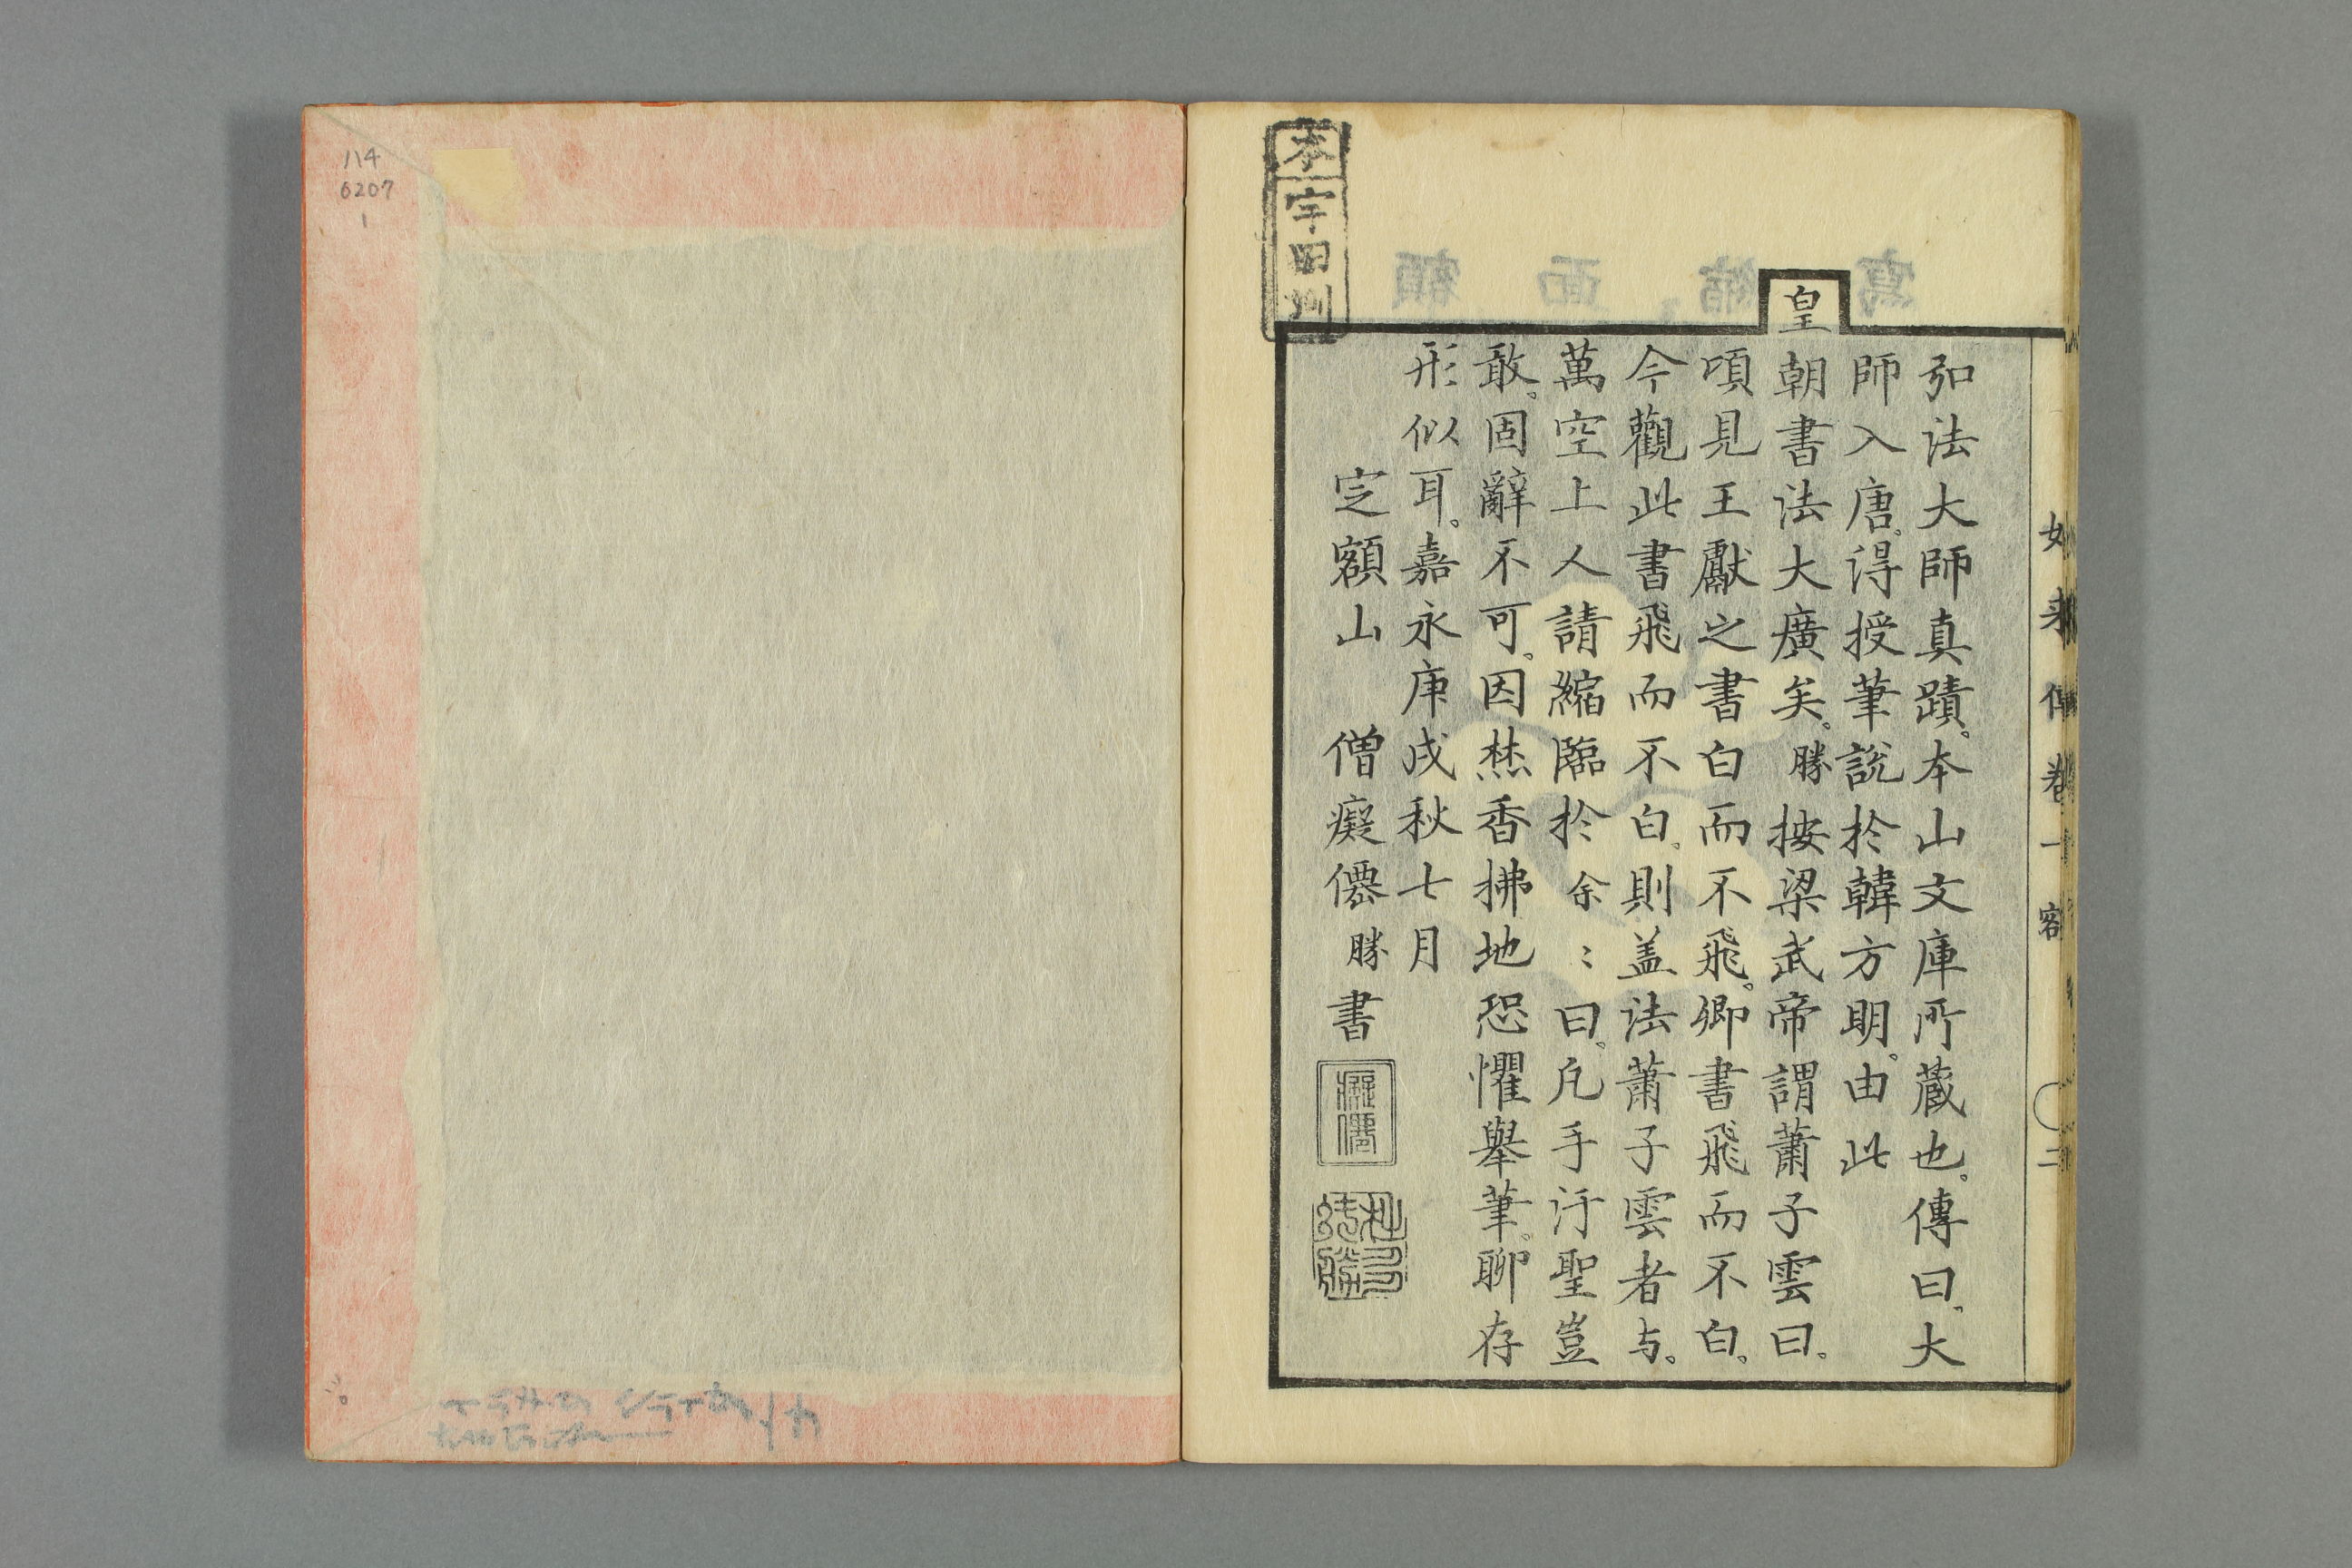 弘法大師真蹟。本山文庫所蔵也。傳曰、大
師入唐。得授筆説於韓方明。由此
皇朝書法大廣矣。勝按梁武帝謂蕭子雲曰。
頃見王獻之書白而不飛。卿書飛而不白。
今觀此書飛而不白。則盖法蕭子雲者与。
萬空上人請縮臨於余〻曰。凡手汙聖豈
敢。固辭不可。因焚香拂地恐懼舉筆。聊存
形似耳。嘉永庚戌秋七月
定額山 僧癡僊勝書
癡僊
114
6207
1